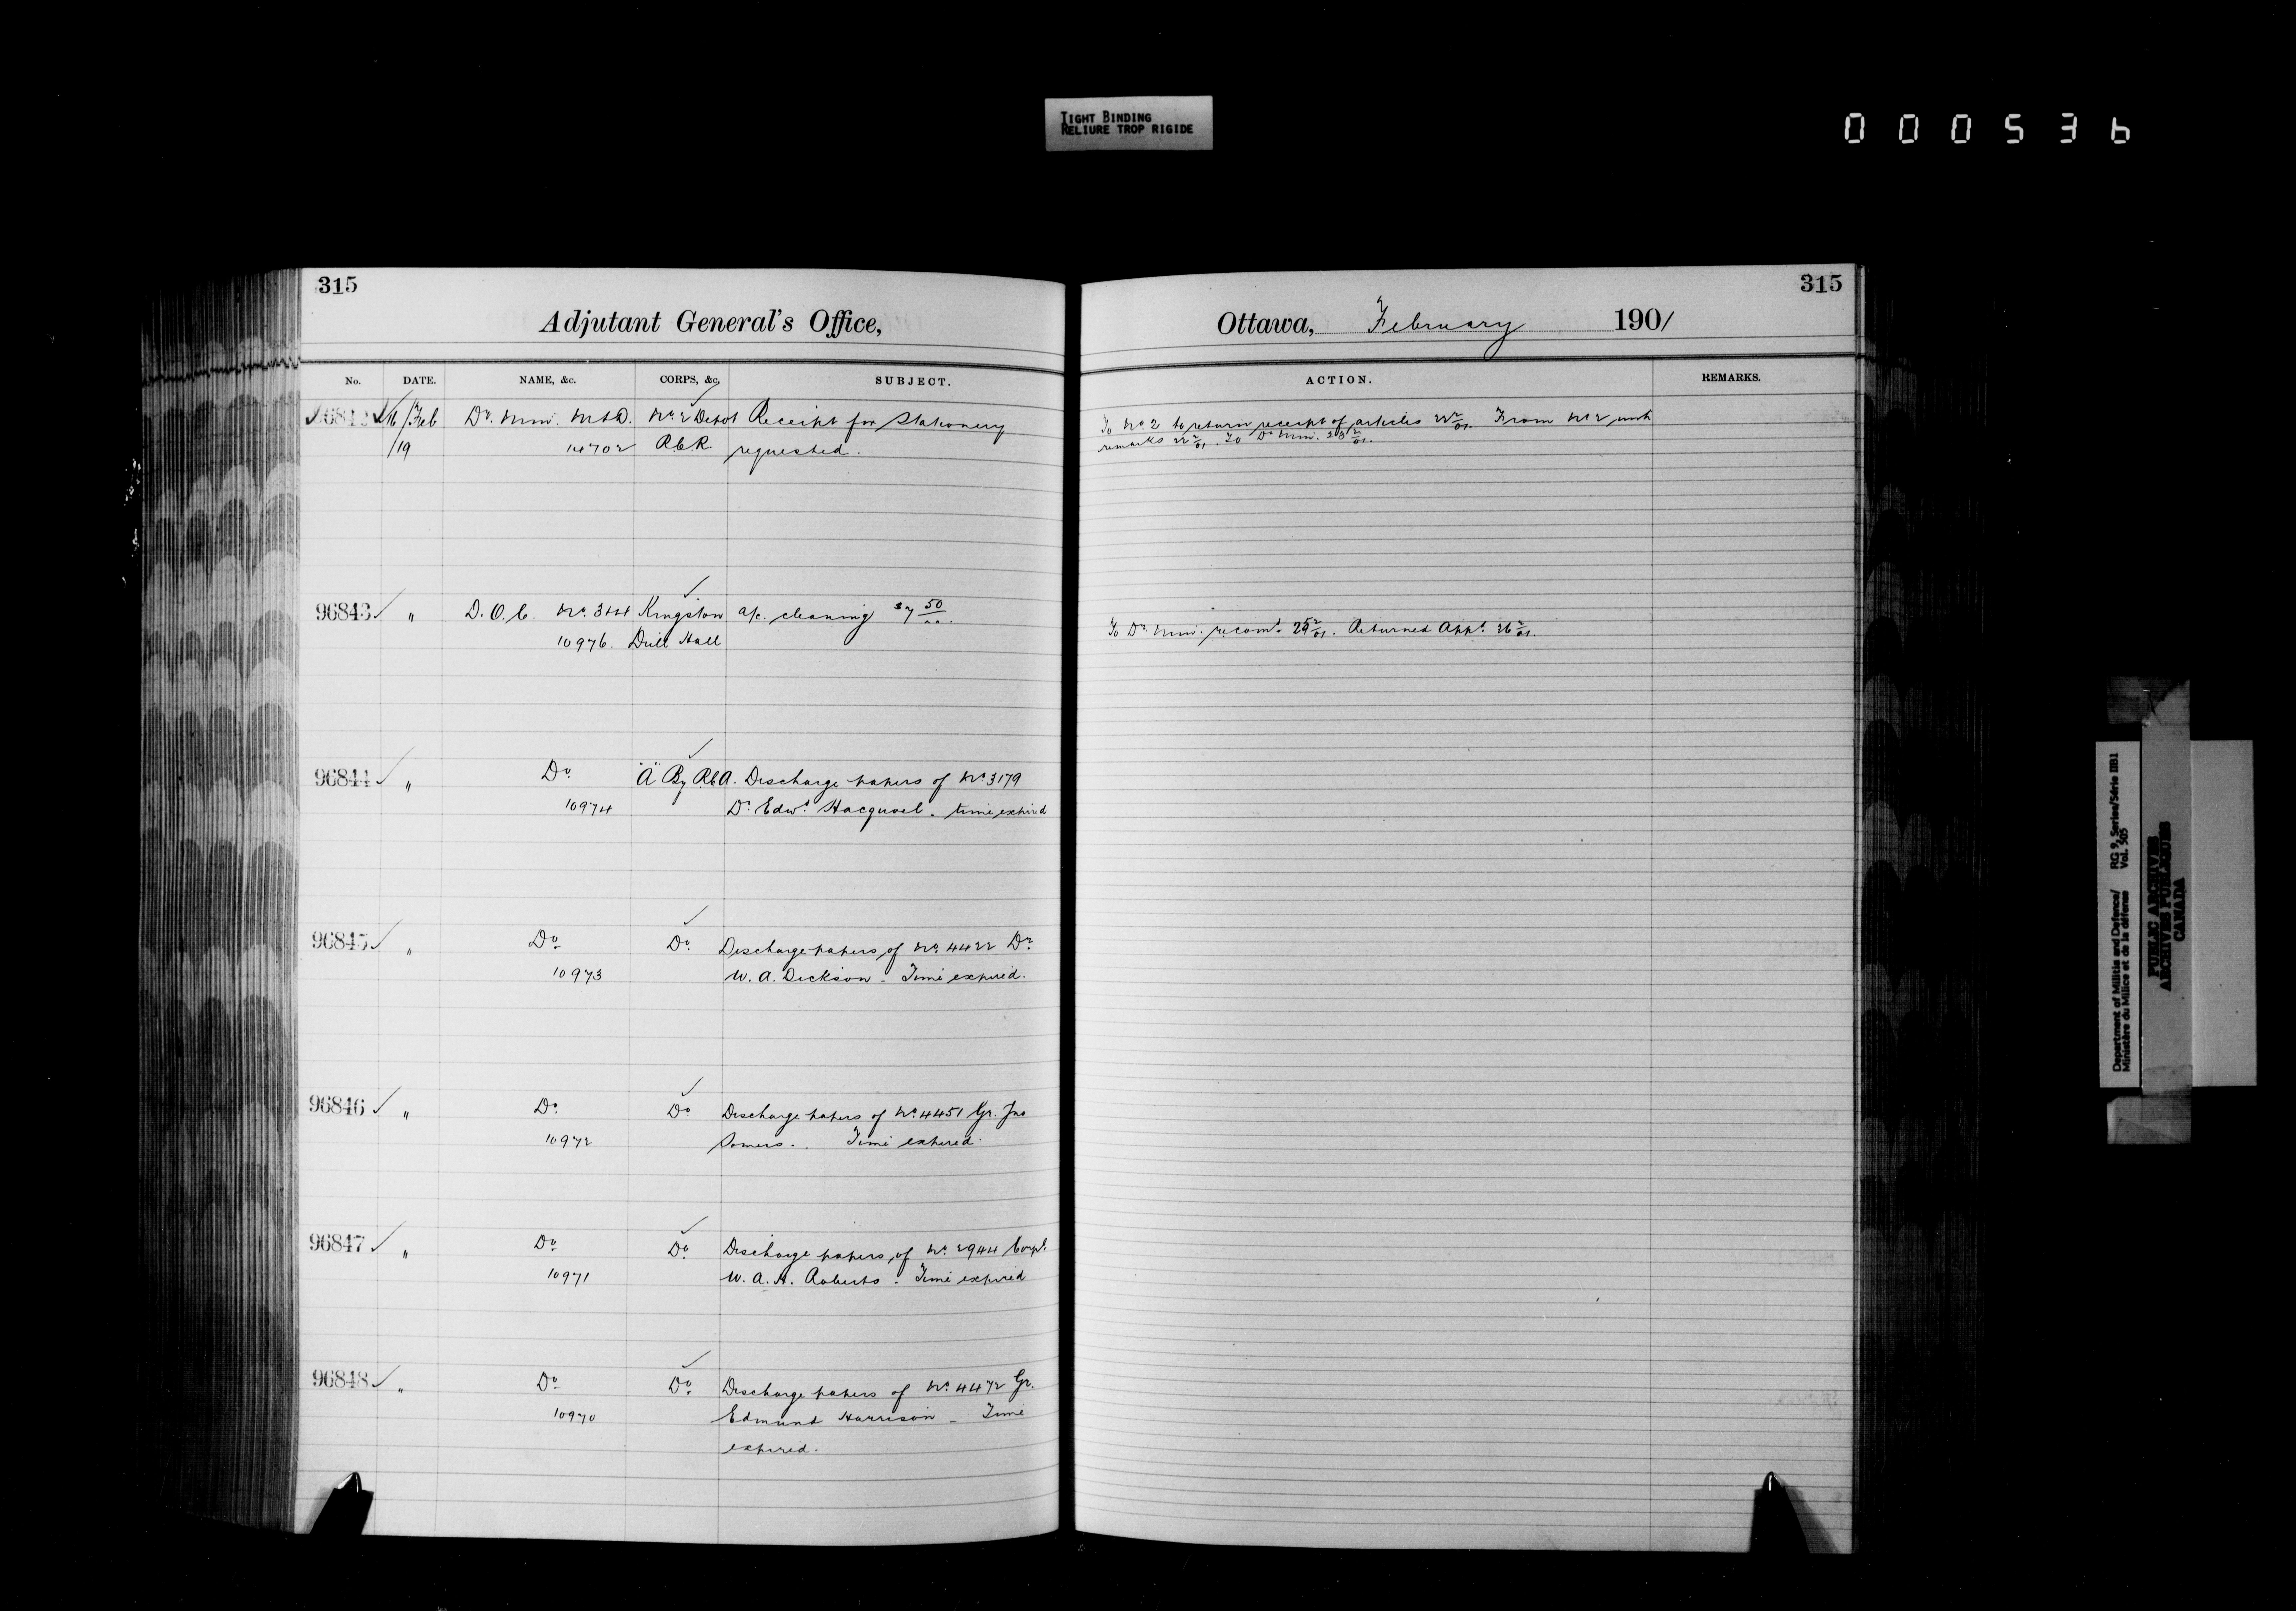 TIGHT BINDING
RELIURE TROP RIGIDE
000536
315
Adjutant General's Office,
No. DATE. NAME, &c. CORPS, &c. SUBJECT.
96842 16/Feb Dr. Min. M&D. No. 2 Depot Receipt for Stationery
/19 14702 R.C.R. requested.
96843 " D.O.C. No. 3&4 Kingston a/c. cleaning $7 50
10976. Drill Hall
96844 " Do "A" By R.C.A. Discharge papers of No. 3179
10974 Dr. Edwd. Hacquoel. time expired
96845 " Do Do. Discharge papers of No. 4422 Dr.
10973 W. A. Dickson - Time expired.
96846 " Do Do Discharge papers of No. 4451 Gr. Jno
10972 Somers. Time expired.
96847 " Do Do Discharge papers of No. 2944 Corpl.
10971 W. A. H. Roberts - Time expired
96848 " Do Do Discharge papers of No. 4472 Gr.
10970 Edmund Harrison - Time
expired.
315
Ottawa, February 1901
ACTION. REMARKS.
To No 2 to return receipt of articles 22 2/01. From No 2 with
remarks 22 2/01. To Dr. Min. 23 2/01.
To Dr. Min. recomd. 25 2/01. Returned Appd. 26 2/01.
Department of Militia and Defence/ RG 9, Series/Série IIB1
Ministère du Milice et de la défense Vol. 505
PUBLIC ARCHIVES
ARCHIVES PUBLIQUES
CANADA